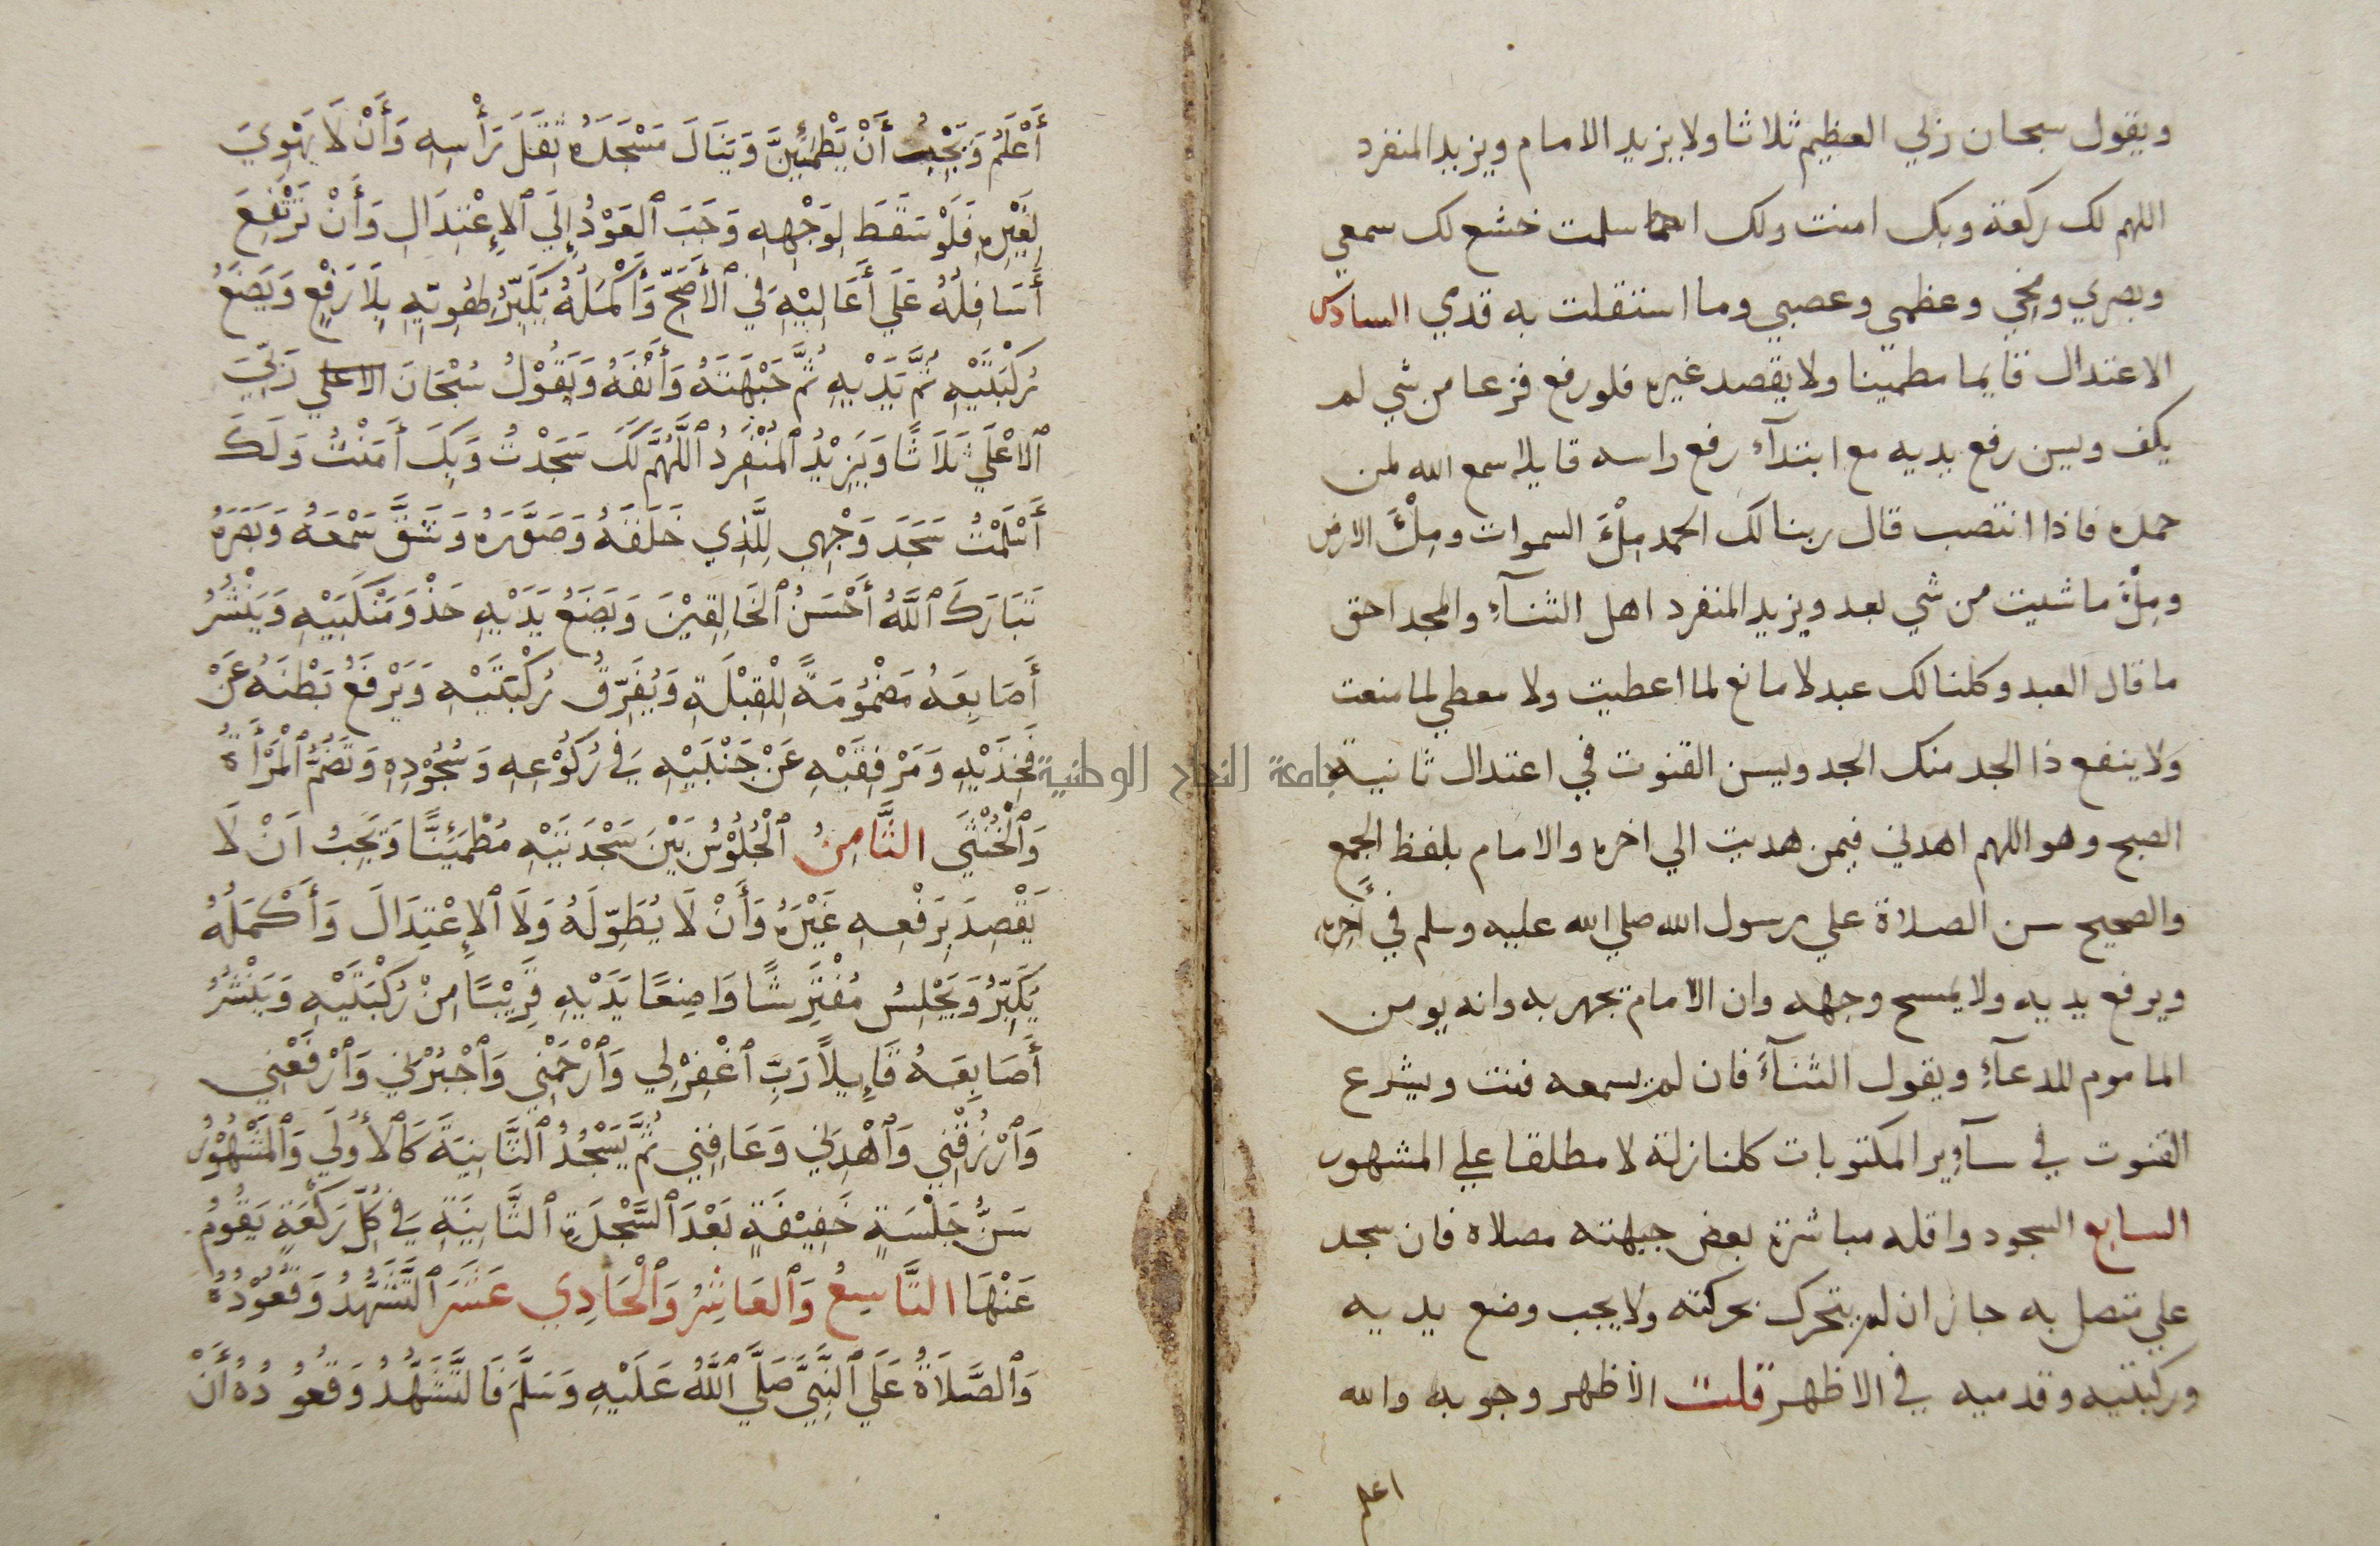 ويقول سبحان ربي العظيم ثلاثا ولا يزيد الامام ويزيد المنفرد
اللهم لك ركعة وبك امنت ولك اسلمت خشع لك سمعي
وبصري ومخي وعظمي وعصبي وما استقلت به قدمي السادس
الاعتدال قايما مطمينا ولا يقصد غيره فلو رفع فزعا من شي لم
يكف ويسن رفع يديه مع ابتدآء رفع راسه قايلا سمع الله لمن
حمده فاذا انتصب قال ربنا لك الحمد مِلْءَ السموات ومِلْءَ الارض
ومِلْءَ ما شيت من شي بعد ويزيد المنفرد اهل الثنآءِ والمجد احق
ما قال العبد وكلنا لك عبد لا مانع لما اعطيت ولا معطي لما منعت
ولا ينفع ذا الجد منك الجد ويسن القنوت في اعتدال ثانية
الصبح وهو اللهم اهدني فيمن هديت الي اخره والامام بلفظ الجمع
والصحيح سن الصلاة علي رسول الله صلي الله عليه وسلم في أخره
ويرفع يديه ولا يمسح وجهه وان الامام يجهر به وانه يومن
الماموم للدعآءِ ويقول الثنآءَ فان لم يسمعه قنت ويشرع
القنوت في سآوير المكتوبات كلنازلة لا مطلقا علي المشهور
السابع السجود واقله مباشرة بعض جبهته مصلاه فان سجد
علي متصل به جاز ان لم يتحرك بحركته ولا يجب وضع يديه
وركبتيه وقدميه في الاظهر قلت الأظهر وجوبه والله
اعلم
أَعْلَمُ وَيَجِبُ أَنْ يَطْمَئِنَّ وَيَنَالَ مَسْجَدَهُ ثِقَلَ رَأْسِهِ وَأَنْ لَا يَهْوِيَ
لِغَيْرِهِ فَلَوْ سَقَطَ لِوَجْهِهِ وَجَبَ ٱلعَوْدُ إِلَي ٱلإِعْتِدَالِ وَأَنْ تَرْتَفِعَ
أَسَافِلُهُ عَلَي أَعَالِيْهِ فِي ٱلأَصَحِّ وَأَكْمَلُهُ يُكَبِّرُ لِهُوِيِّهِ بِلَا رَفْعٍ وَيَضَعُ
رُكْبَتَيْهِ ثُمَّ يَدَيْهِ ثُمَّ جَبْهَتَهُ وَأَنْفَهُ وَيَقُوْلُ سُبْحَانَ الاعلي رَبِّيَ
ٱلاعْلَي ثَلَاثًا وَيَزِيْدُ ٱلمُنْفَرِدُ ٱللَّهُمَّ لَكَ سَجَدْتُ وَبِكَ أَمَنْتُ وَلَكَ
أَسْلَمْتُ سَجَدَ وَجْهِي لِلَّذِي خَلَقَهُ وَصَوَّرَهُ وَشَقَّ سَمْعَهُ وَبَصَرَهُ
تَبَارَكَ ٱللَّهُ أَحْسَنُ ٱلخَالِقِيْنَ وَيَضَعُ يَدَيْهِ حَذْوَ مَنْكِبَيْهِ وَيَنْشُرُ
أَصَابِعَهُ مَضْمُوْمَةً لِلْقِبْلَةِ وَيُفَرِّقُ رُكْبَتَيْهِ وَيَرْفَعُ بَطْنَهُ عَنْ
فَخِذَيْهِ وَمَرْفِقَيْهِ عَنْ جَنْبَيْهِ فِي رُكُوْعِهِ وَسُجُوْدِهِ وَتَضُمُّ ٱلْمَرْأَةُ
وَٱلْخُنْثَي الثَّامِنُ ٱلْجُلُوْسُ بَيْنَ سَجْدَتَيْهِ مُطْمَئِنًّا وَيَجِبُ اَنْ لَا
يَقْصِدَ بِرَفْعِهِ غَيْرَهُ وَأَنْ لَا يُطَوِّلَهُ وَلَا ٱلإِعْتِدَالَ وَأَكْمَلُهُ
يُكَبِّرُ وَيَجْلِسُ مُفْتَرِشًا وَاضِعًا يَدَيْهِ قَرِيْبًا مِنْ رُكْبَتَيْهِ وَيَنْشُرُ
أَصَابِعَهُ قَايِلاً رَبِّ ٱغْفِرْلِي وَٱرْحَمْنِي وَٱجْبُرْنِي وَٱرْفَعْنِي
وَٱرْزُقْنِي وَٱهْدِنِي وَعَافِنِي ثُمَّ يَسْجُدُ ٱلثَّانِيَةَ كَٱلأُوْلَي وَٱلمَشْهُوْرُ
سَنُّ جَلْسَةٍ خَفِيْفَةٍ بَعْدَ ٱلسَّجْدَةِ ٱلثَّانِيَةِ فِي كُلِّ رَكْعَةٍ يَقُومُ
عَنْهَا التَّاسِعُ وَٱلعَاشِرُ وَٱلْحَادِي عَشَرَ ٱلتَّشَهُّدُ وَقُعُوْدُهُ
وَٱلصَّلَاةُ عَلَي ٱلنَّبِيَّ صَلَّي ٱللَّهُ عَلَيْهِ وَسَلَّمَ فَالتَّشَهُّدُ وَقُعُوْدُهُ أَنْ
جامعة النجاح الوطنية